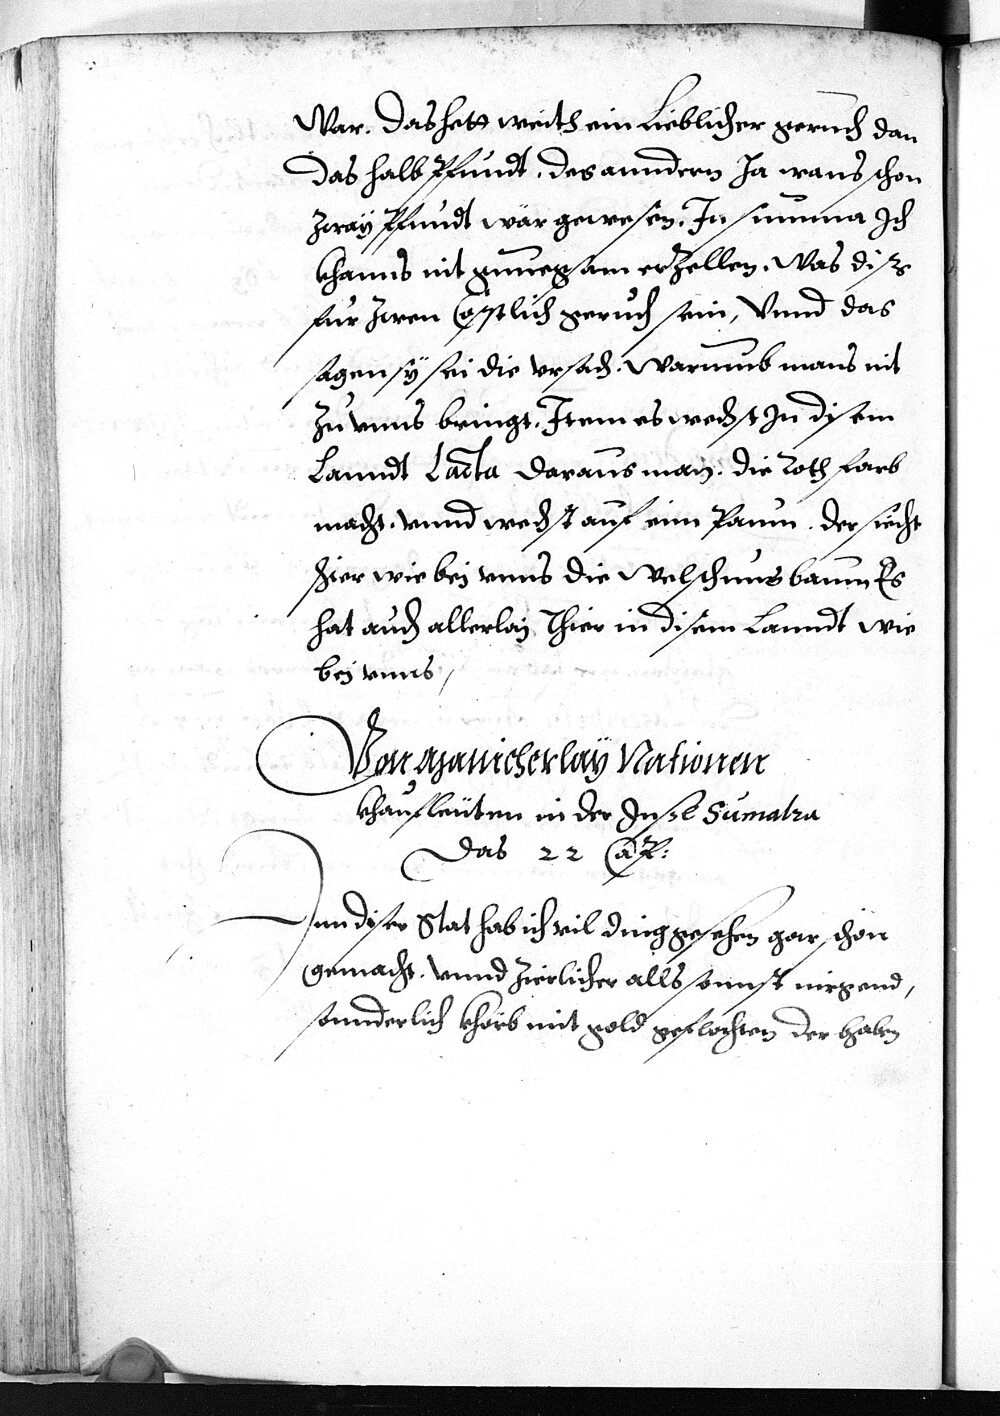 War. Das hett weith ein Lieblicher geruch dan
Das halb Pfundt. des anndern Ja wans schon
Zway Pfundt wär gewesen. In summa Ich
khanns nit gnuegsam erzellen. Was diss
für Zwen Cöstlich geruch sein, Vnnd das
sagen sÿ sei die vrsach. Warumb mans nit
Zu vnns bringt. Item es wechst In disem
Lanndt Lacta daraus man. die Roth farb
macht. vnnd wechst auf eim Paum. der siecht
schier wie bej vnns die Welschnusbaum Es
hat auch allerlaÿ Thier in disem Lanndt wie
bej vnns,
Von Manicherlaÿ Nationen
khaufleüten in der Insel Sumatra
Das 22 Cap:
Inn diser Stat hab ich vil ding gesehen gar schön
gemacht. vnnd Zierlicher alls sonnst nirgend,
sonnderlich khörb mit gold geflochten der haben